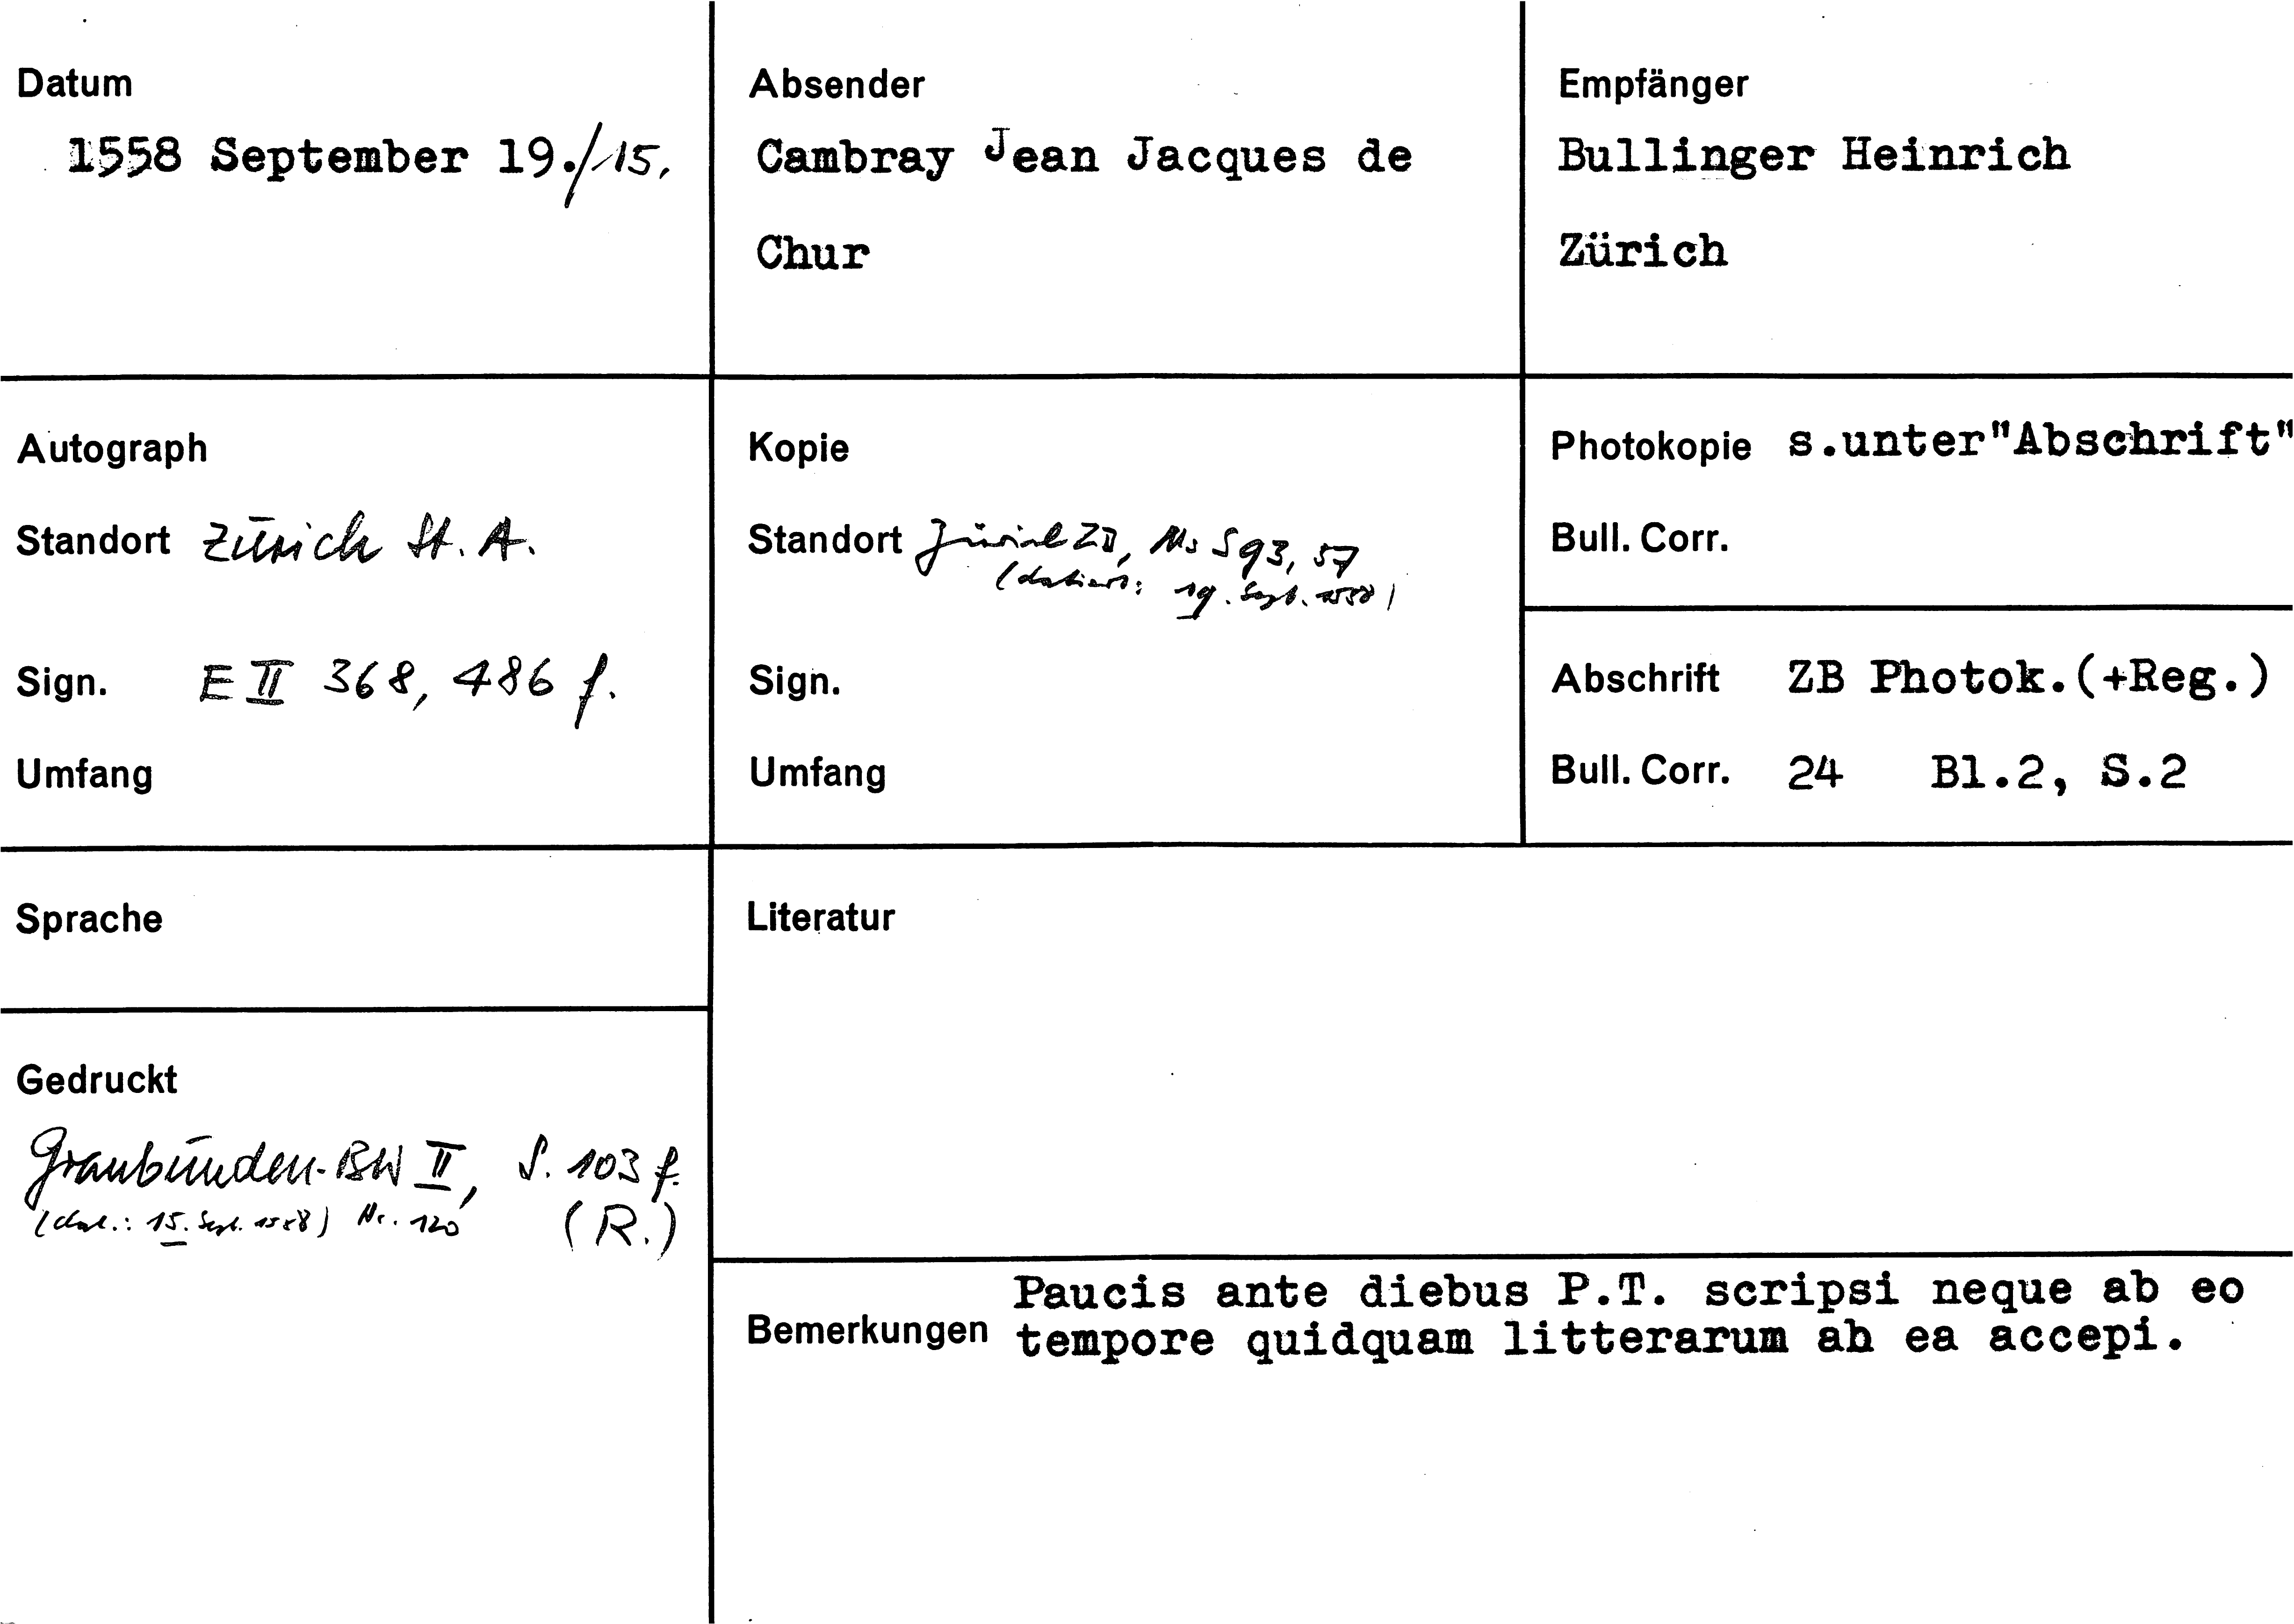 Datum
1558 September 19./15.
Absender
Cambray Jean Jacques de
Chur
Empfänger
Bullinger Heinrich
Zürich
Autograph
Standort Zürich St. A.
Sign. E II 368, 486 f.
Umfang
Kopie
Standort Zürich ZB, Ms S 93, 57
(datiert: 19. Sept. 1558)
Sign.
Umfang
Photokopie s.unter"Abschrift"
Bull. Corr.
Abschrift ZB Photok.(+Reg.)
Bull. Corr. 24 Bl.2, S.2
Sprache
Literatur
Gedruckt
Graubünden-BW II, S. 103 f.
(dat.: 15. Sept. 1558) Nr. 120 (R.)
Bemerkungen
Paucis ante diebus P.T. scripsi neque ab eo
tempore quidquam litterarum ab ea accepi.